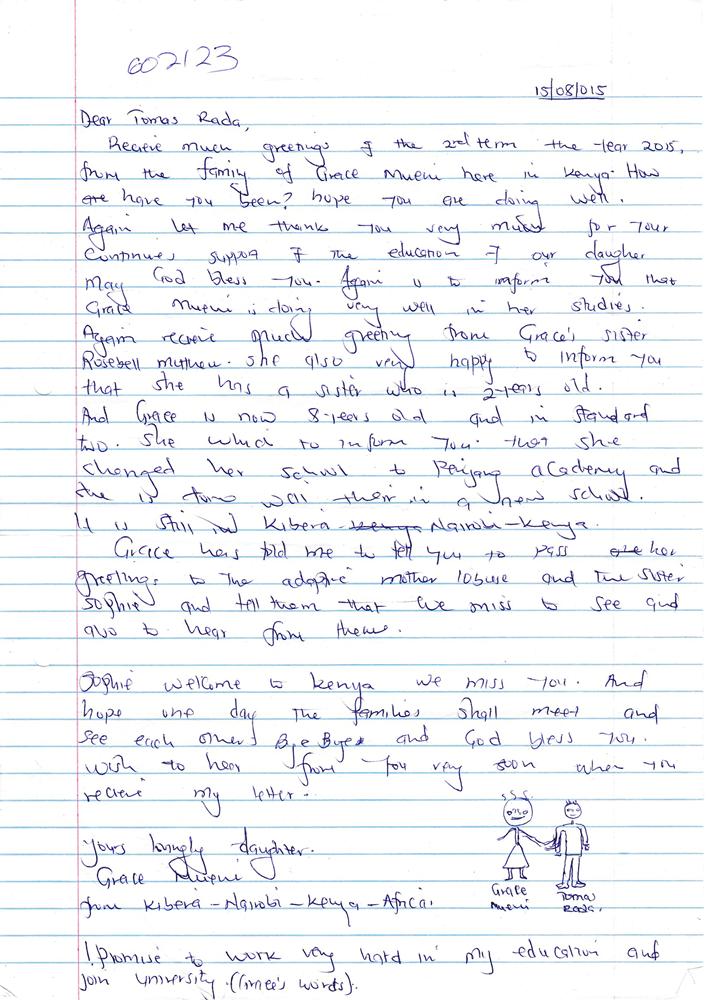 602123
15/08/015
Dear Tomas Rada,
Recieve much greetings of the 2nd term the year 2015,
from the family of Grace Mueni here in Kenya. How
are have you been? hope you are doing well.
Again let me thank you very much for your
Continues support of the education of our daughter
may God bless you. Again is to inform you that
Grace Mueni is doing very well in her studies.
Again recieve much greeting from Grace's sister
Rosebell mutheu. she also very happy to inform you
that she has a sister who is 2-years old.
And Grace is now 8-years old and in standard
two. She which to inform you. that she
changed her school to academy and
she is well their in a new school.
It is still in Kibera - Kenya Nairobi - Kenya.
Grace has told me to tell you to pass her
greetings to the adoptive mother and the sister
Sophie and tell them that we miss to see and
also to hear from theme.
Sophie welcome to Kenya we miss you. And
hope one day the families shall meet and
see each others Bye Byee and God bless you.
wish to hear from you very soon when you
recieve my letter.
yours lovingly daughter.
Grace Mueni
from Kibera - Nairobi - Kenya - Africa.
Grace
Mueni
Tomas
Rada.
I Promise to work very hard in my education and
join university. (Grace's words).